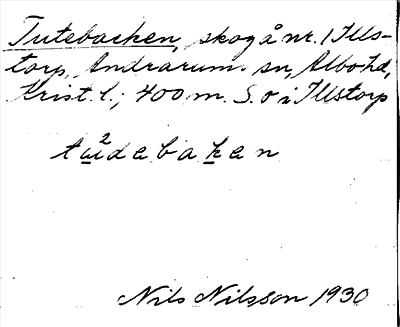 Tutebacken, skog å nr. 1 Ills-
torp, Andrarum sn, Albo hd,
Krist. l.; 400 m. S. o i Illstorp
tu²debaken
Nils Nilsson 1930